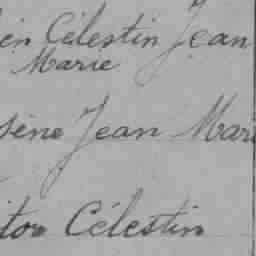 en Célestin Jean
Marie
sène Jean Mari
tor Célestin